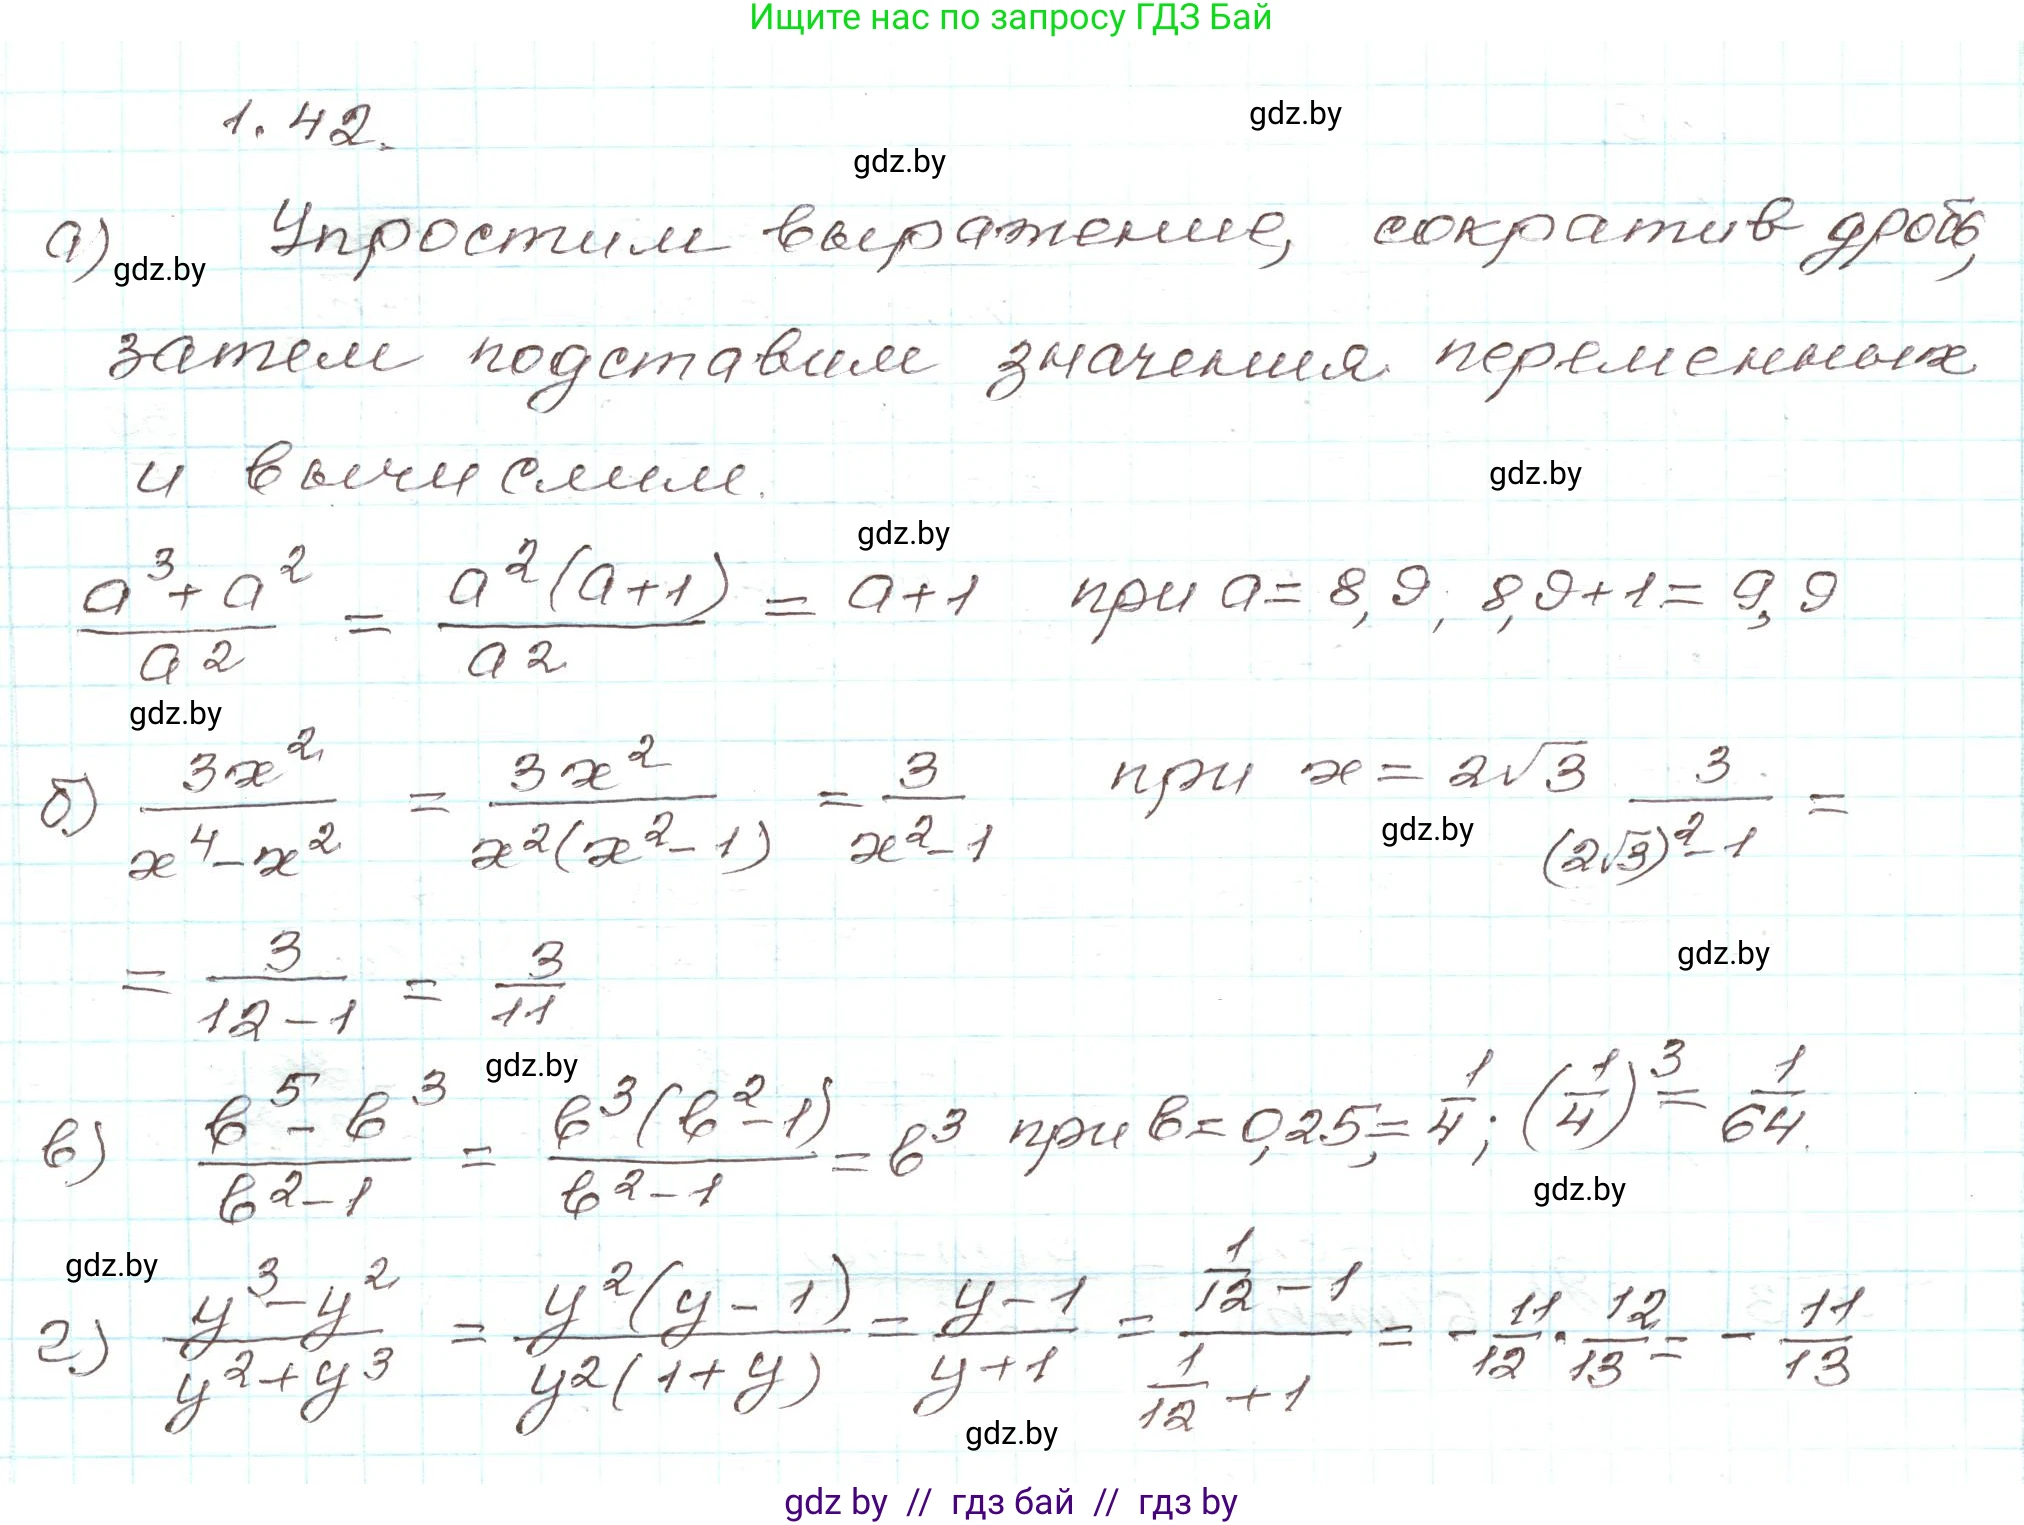 Ищите нас по запросу ГДЗ Бай
1.42.
gdz.by
gdz.by
а) Упростим выражение, сократив дробь,
gdz.by
затем подставим значения переменных
и вычислим.
gdz.by
gdz.by
(a³+a²)/a² = a²(a+1)/a² = a+1 при a=8,9; 8,9+1=9,9
gdz.by
б) 3x²/(x⁴-x²) = 3x²/(x²(x²-1)) = 3/(x²-1) при x=2√3 3/((2√3)²-1) =
gdz.by
= 3/(12-1) = 3/11
gdz.by
gdz.by
в) (b⁵-b³)/(b²-1) = b³(b²-1)/(b²-1) = b³ при b=0,25;=1/4; (1/4)³=1/64.
gdz.by
gdz.by
г) (y³-y²)/(y²+y³) = y²(y-1)/(y²(1+y)) = (y-1)/(y+1) = (1/12-1)/(1/12+1) = -11/12·12/13 = -11/13
gdz.by
gdz by // гдз бай // гдз by